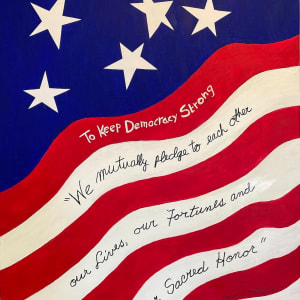 To Keep Democracy Strong
"We mutually pledge to each other
our Lives, our Fortunes and
Sacred Honor"